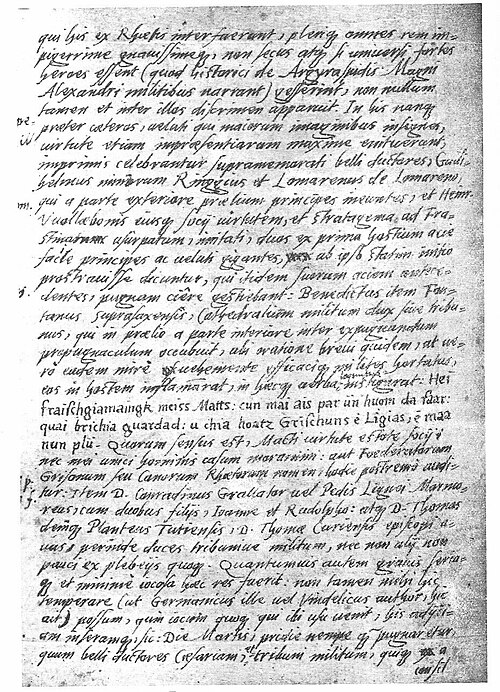 qui his ex Rhætis interfuerunt, plerique omnes rem im-
pigerrime gnauissimeq, non secus atq, si uniuersi fortes
heroes essent (quod historici de Argyraspidis Magni
Alexandri militibus narrant) gesserint, non nullum
tamen et inter illos discrimen apparuit. In his nanq
præter cæteros, uelut qui maiorum imaginibus insignes,
uirtute etiam impræsentiarum maxime emituerunt,
imprimis celebrantur supramemorati belli ductores, Guili-
helmus nimirum Ringgius et Lomarenus de Lomareno,
qui a parte exteriore prælium principes ineuntes, et Henr.
Vuollæbomis eiusq socij uirtutem, et stratagema ad Fra-
stinatum usurpatum, imitati, duos ex prima hostium acie
facile principes ac uelut gigantes, ab ipso statim initio
prostrauisse dicuntur, qui itidem suorum aciem antece-
dentes, pugnam ciere gestiebant: Benedictus item Fon-
tanus Suprasaxensis, Cathedralium militum dux siue tribu-
nus, qui in prælio a parte interiore inter expugnandum
propugnaculum occubuit, ubi oratione breui quidem, at ue-
rò eadem mirè uehementè efficaciq milites hortatus,
eos in hostem inflammarat, in hæcq uerba instigarat: Hei
fraischgiamaingk meiss Matts: cun mai ais par ün huom da faar:
quai brichia guardad: u chia hoatz Grischuns è Ligias, è maa
nun plü. Quorum sensus est, Macti uirtute estote socij;
nec mei unici hominis casum moramini: aut Foederatorum
Grisonum seu Canorum Rhætorum nomen, hodie postremò audi-
tur: Item D. Conradinus Grallator uel Pedis Lignei Marmo-
reas, cum duobus filijs, Ioanne et Radolpho: atq D. Thomas
deniq Planteus Tutiensis, D. Thomæ Curiensis episcopi a-
uus, perinde duces tribuniue militum, nec non alij non
pauci ex plebeijs quoq. Quantumuis autem grauis seria-
q et minimè iocosa hæc res fuerit: non tamen mihi hic
temperare (ut Germanicus ille uel Vindelicus author, hic
ait) possum, quin iocum quoq, qui ibi usu uenit, his adijci-
am inseramq, sic: Die Martis, pridie nempe q pugnaretur,
quum belli ductores Cæsariani, et tribuni militum,
consil